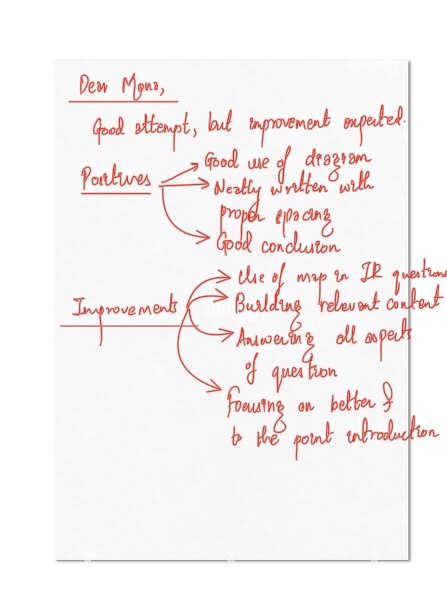 Dear Mona,
Good attempt, but improvement expected.
Positives
Good use of diagram
Neatly written with
proper spacing
Good conclusion
Improvements
Use of map in IR questions
Building relevant content
Answering all aspects
of question
Focusing on better &
to the point introduction